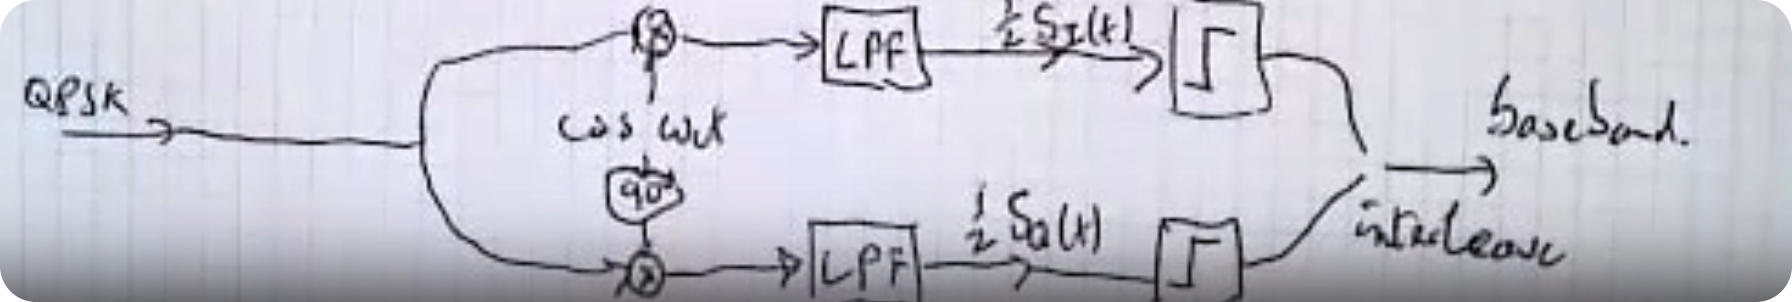 QPSK
LPF
½ S_I(t)
cos wct
90°
LPF
½ S_Q(t)
baseband.
interleave